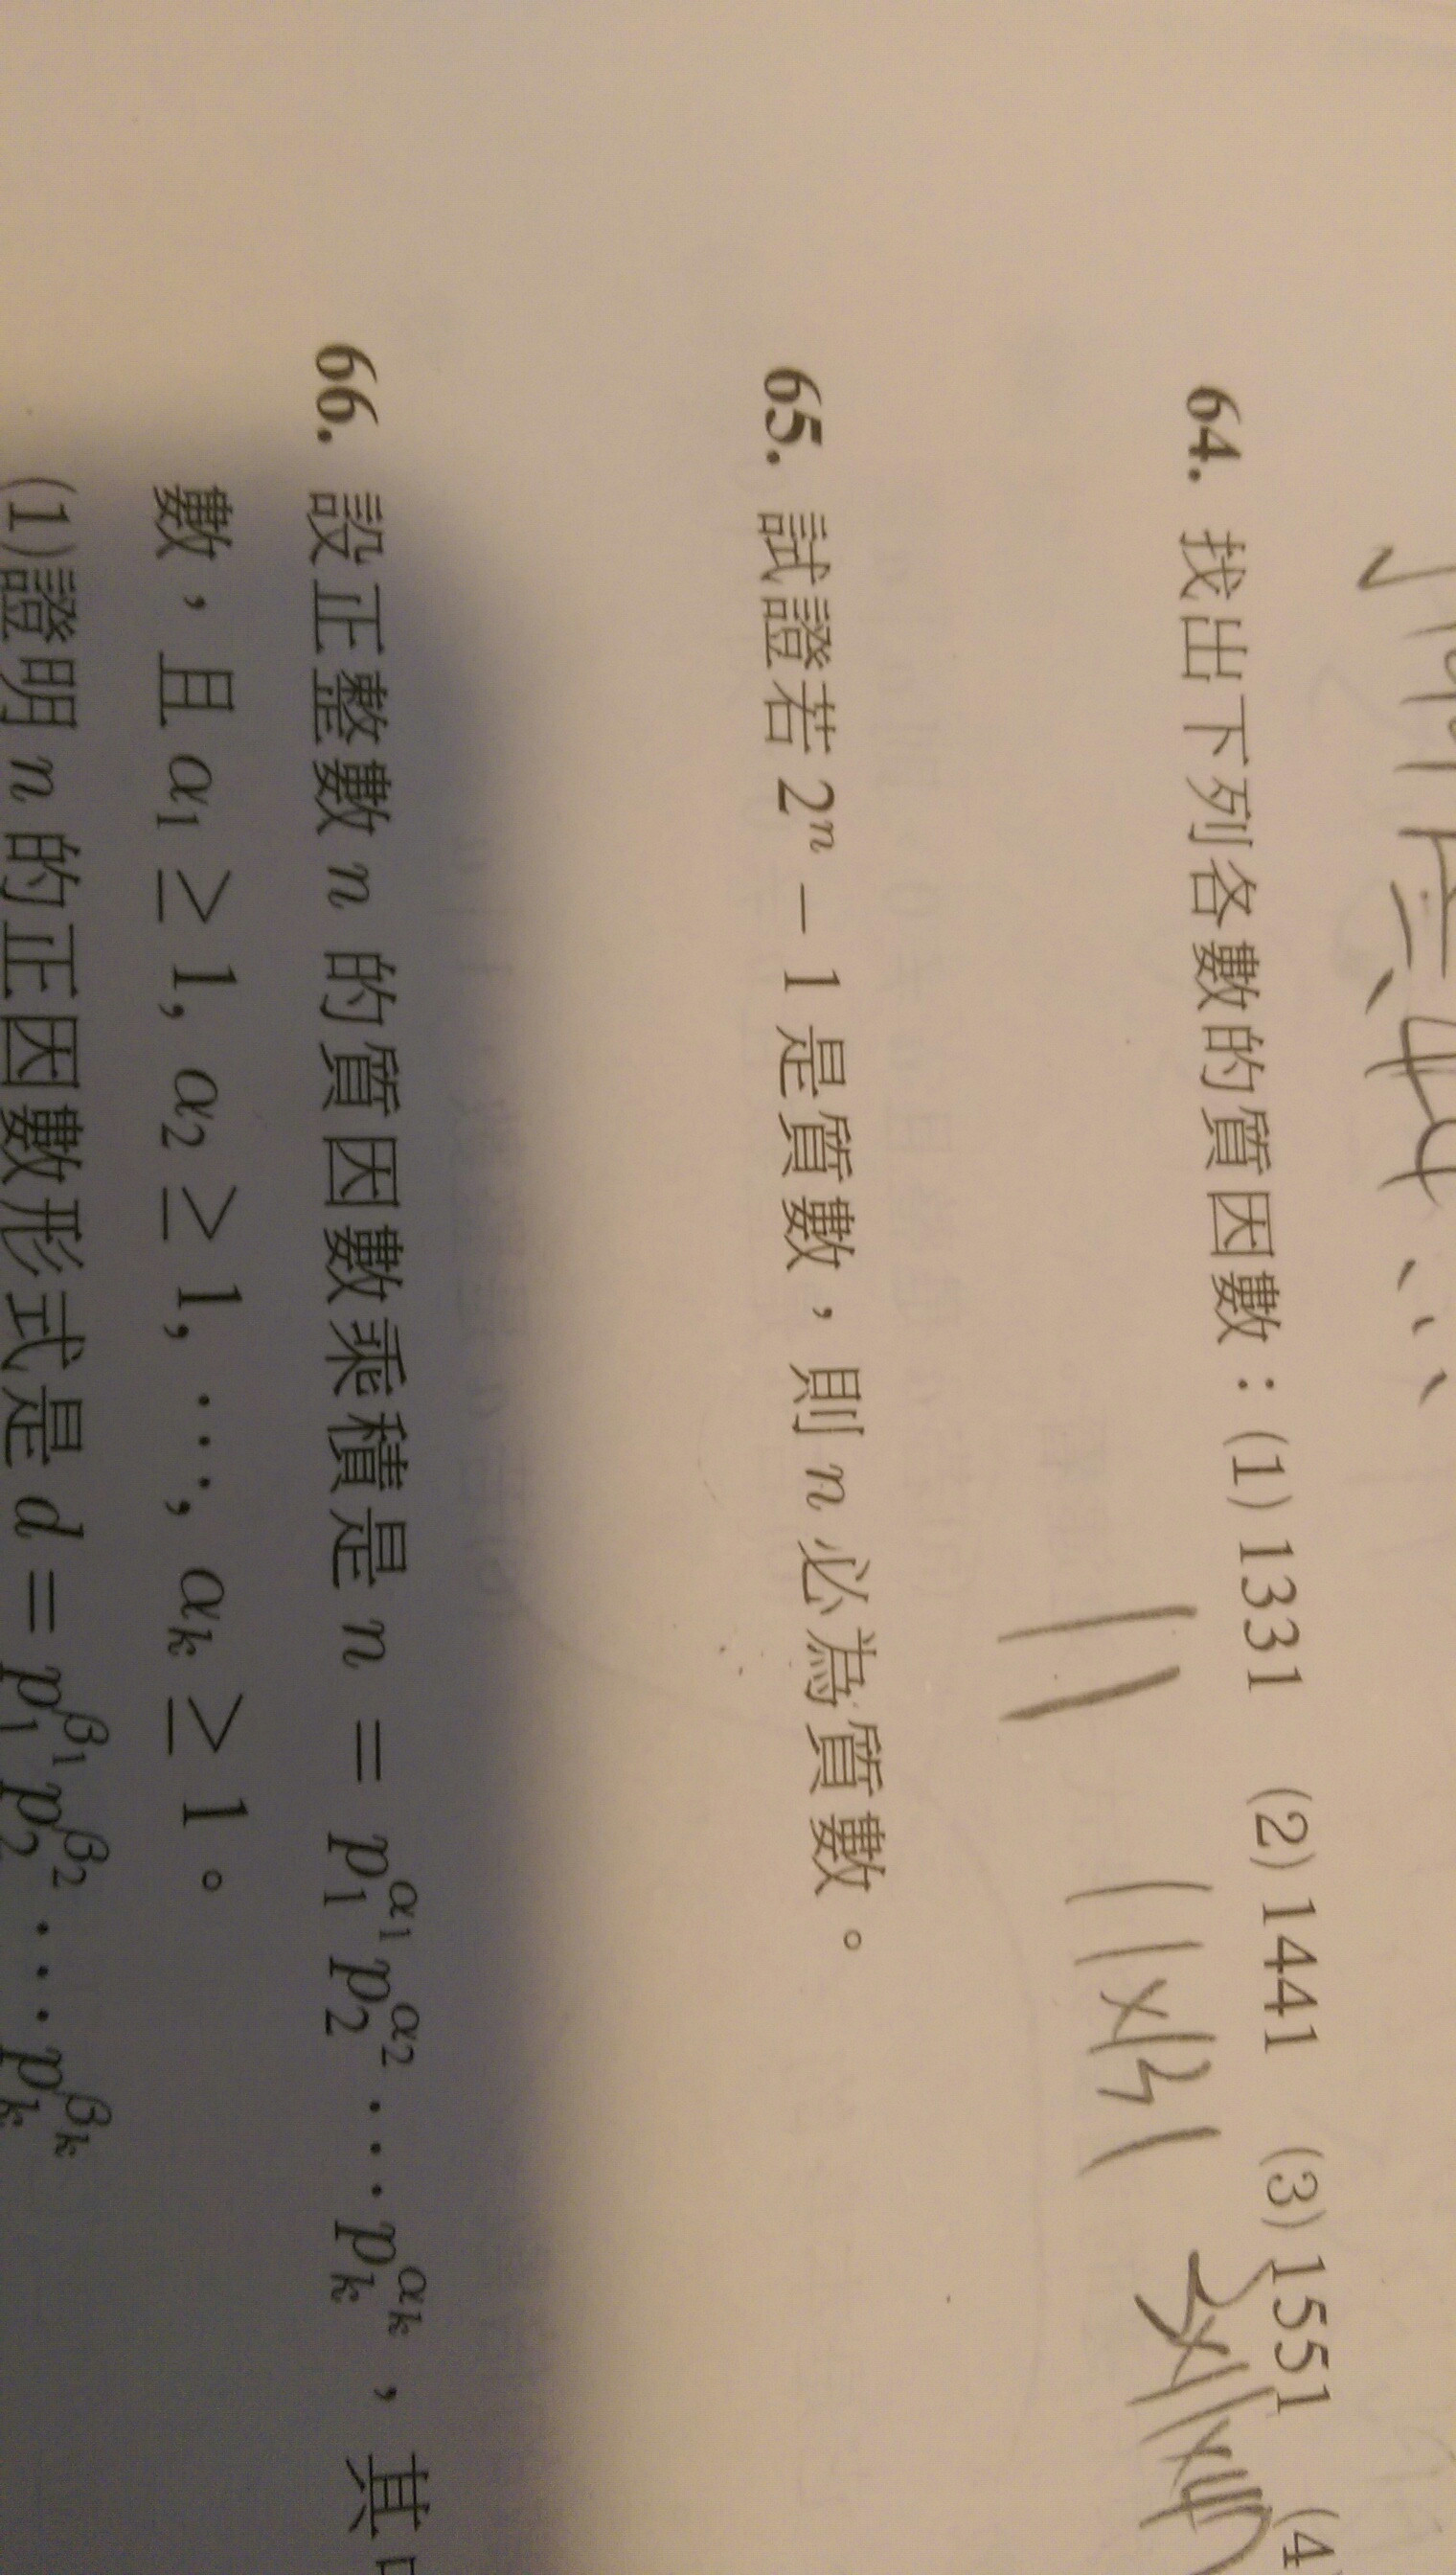 64. 找出下列各數的質因數：(1) 1331 (2) 1441 (3) 1551 (4)
11 11×131 3×11×47
65. 試證若 2ⁿ − 1 是質數，則 n 必為質數。
66. 設正整數 n 的質因數乘積是 n = p₁^α₁ p₂^α₂ ⋯ pₖ^αₖ，其
數，且 α₁ ≥ 1, α₂ ≥ 1, ⋯, αₖ ≥ 1。
(1)證明 n 的正因數形式是 d = p₁^β₁ p₂^β₂ ⋯ pₖ^βₖ